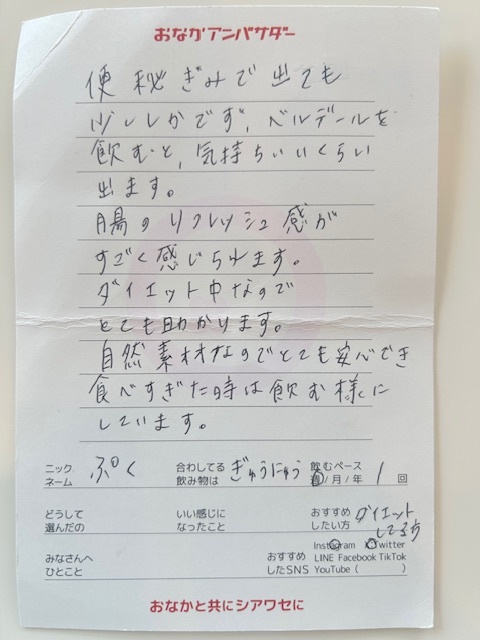 おなかアンバサダー
便秘ぎみで出ても
少ししかでず、ベルデールを
飲むと、気持ちいいくらい
出ます。
腸のリフレッシュ感が
すごく感じられます。
ダイエット中なので
とても助かります。
自然素材なのでとても安心でき
食べすぎた時は飲む様に
しています。
ニックネーム ぷく 合わしてる飲み物は ぎゅうにゅう 飲むペース 週/月/年 1 回
どうして選んだの いい感じになったこと おすすめしたい方 ダイエットしてる方
みなさんへひとこと おすすめしたSNS Instagram Twitter
LINE Facebook TikTok
YouTube ( )
おなかと共にシアワセに